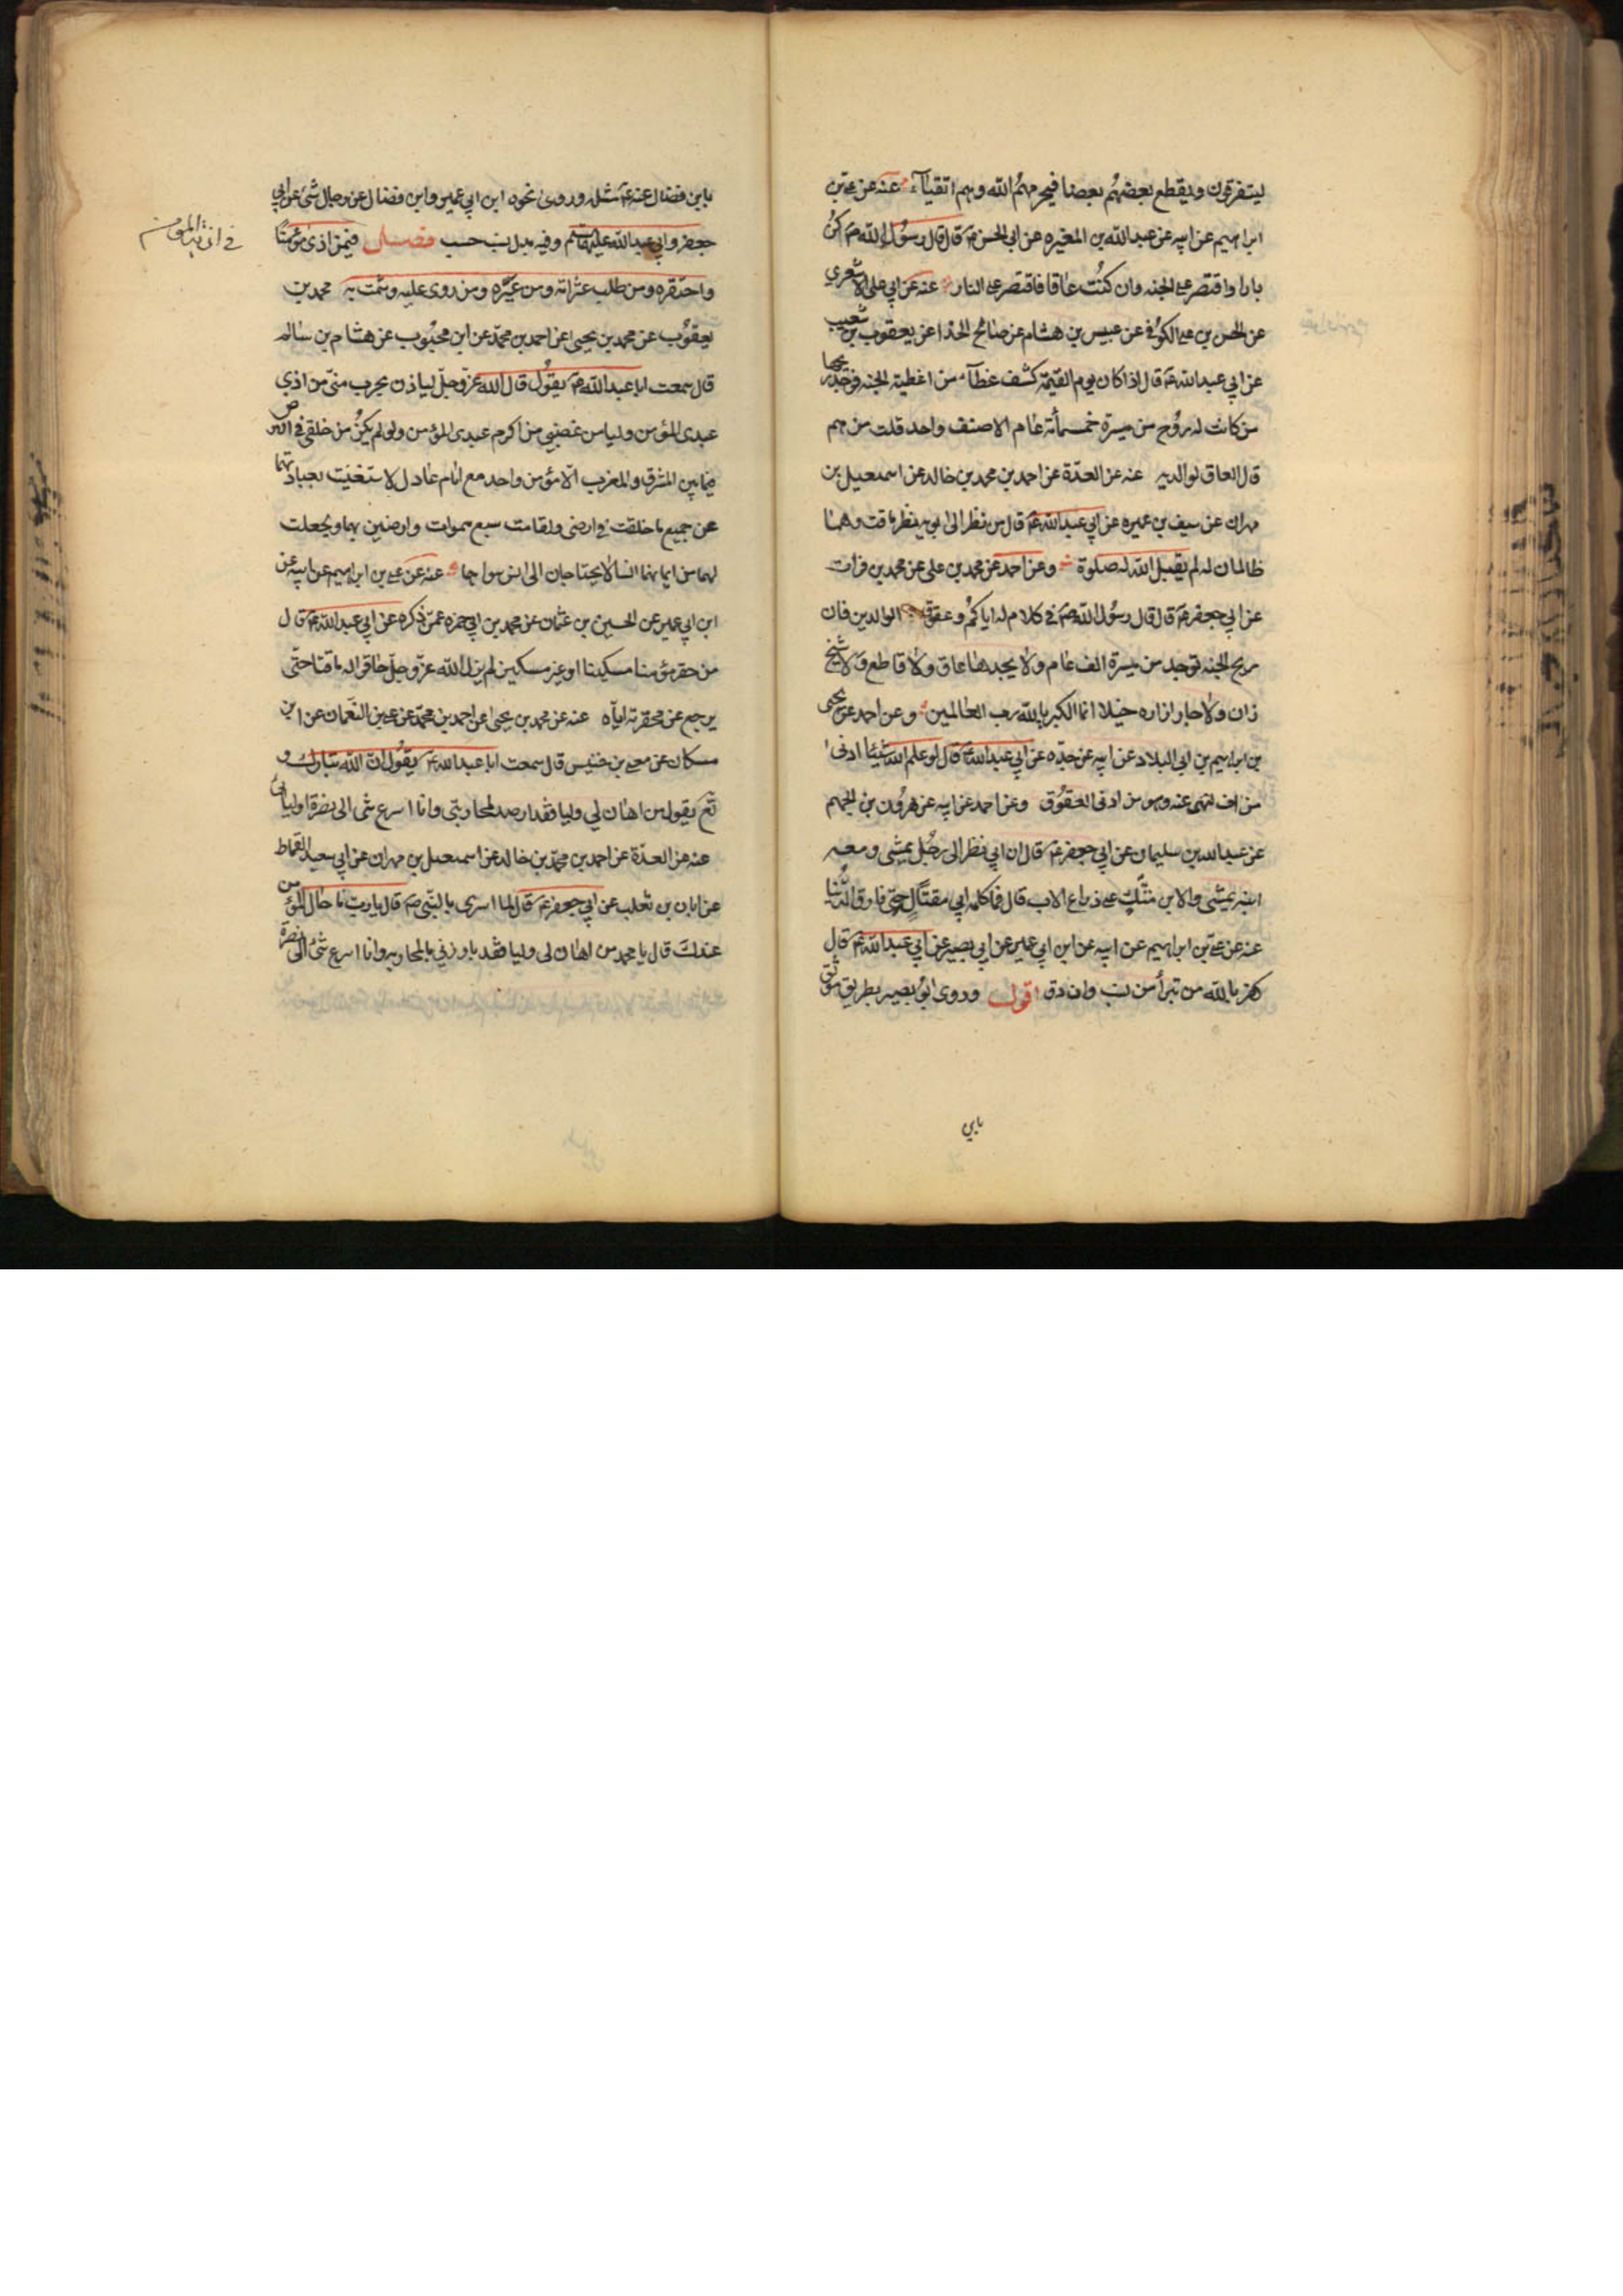 ليتفرقون ويقطع بعضهم بعضا فيحرمهم الله وهم اتقيآء عنه عن على بن
ابراهيم عن ابيه عن عبد الله بن المغيره عن ابى الحسن ع قال قال رسول الله ص كن
بارا واقتصر على الجنه وان كنت عاقا فاقتصر على النار عنه عن ابي على الاشعري
عن الحسن بن على الكوفى عن عبيس بن هشام عن صالح الحذا عن يعقوب بن شعيب
عن ابي عبد الله ع قال اذا كان يوم القيمة كشف غطآء من اغطية الجنه فوجد ريحها
من كانت له روح من مسيرة خمسمائة عام الا صنف واحد قلت من هم
قال العاق لوالديه عنه عن العدة عن احمد بن محمد بن خالد عن اسمعيل بن
مهران عن سيف بن عميره عن ابي عبد الله ع قال من نظر الى ابويه نظر ماقت وهما
ظالمان له لم يقبل الله له صلوة وعن احمد عن محمد بن على عن محمد بن فرات
عن ابي جعفر ع قال قال رسول الله ص في كلام له اياكم وعقوق الوالدين فان
ريح الجنه توجد من مسيرة الف عام ولا يجدها عاق ولا قاطع ولا شيخ
زان ولا جار ازاره خيلا انما الكبريا لله رب العالمين وعن احمد عن يحيى
بن ابراهيم بن ابي البلاد عن ابيه عن جده عن ابي عبد الله ع قال لو علم الله شيئا ادنى
من اف لنهى عنه وهو من ادنى العقوق وعن احمد عن ابيه عن هرون بن الجهم
عن عبد الله بن سليمان عن ابي جعفر ع قال ان ابي نظر الى رجل يمشى ومعه
ابنه يمشى والابن متك على ذراع الاب قال فما كلمه ابي مقتا له حتى فارق الدنيا
عنه عن على بن ابراهيم عن ابيه عن ابن ابي عمير عن ابي بصير عن ابي عبد الله ع قال
كفر بالله من تبرأ من نسب وان دق اقول وروى ابو بصير بطريق موثق
بابن
بابن فضال عنه ع مثله وروى نحوه ابن ابي عمير وابن فضال عن رجال شتى عن ابي
جعفر وابي عبد الله عليهما السلم وفيه بدل نسب حسب فصل فيمن اذى مؤمنا
في اذية المؤمن
واحتقره ومن طلب عثراته ومن عيره ومن روى عليه وشمت به محمد بن
يعقوب عن محمد بن يحيى عن احمد بن محمد عن ابن محبوب عن هشام بن سالم
قال سمعت ابا عبد الله ع يقول قال الله عز وجل لياذن بحرب منى من اذى
عبدى المؤمن وليامن غضبي من اكرم عبدى المؤمن ولو لم يكن من خلقى في الارض
فيما بين المشرق والمغرب الا مؤمن واحد مع امام عادل لاستغنيت بعبادتهما
عن جميع ما خلقت في ارضى ولقامت سبع سموات وارضين بهما ولجعلت
لهما من ايمانهما انسا لا يحتاجان الى انس سواهما عنه عن على بن ابراهيم عن ابيه عن
ابن ابي عمير عن الحسين بن عثمان عن محمد بن ابي حمزه عمن ذكره عن ابي عبد الله ع قال
من حقر مؤمنا مسكينا او غير مسكين لم يزل الله عز وجل حاقرا له ماقتا حتى
يرجع عن محقرته اياه عنه عن محمد بن يحيى عن احمد بن محمد عن على بن النعمان عن ابن
مسكان عن معلى بن خنيس قال سمعت ابا عبد الله ع يقول ان الله تبارك و
تع يقول من اهان لي وليا فقد ارصد لمحاربتى وانا اسرع شى الى نصرة اوليائى
عنه عن العدة عن احمد بن محمد بن خالد عن اسمعيل بن مهران عن ابي سعيد القماط
عن ابان بن تغلب عن ابي جعفر ع قال لما اسرى بالنبى ص قال يا رب ما حال المؤمن
عندك قال يا محمد من اهان لى وليا فقد بارزني بالمحاربه وانا اسرع شئ الى نصرة